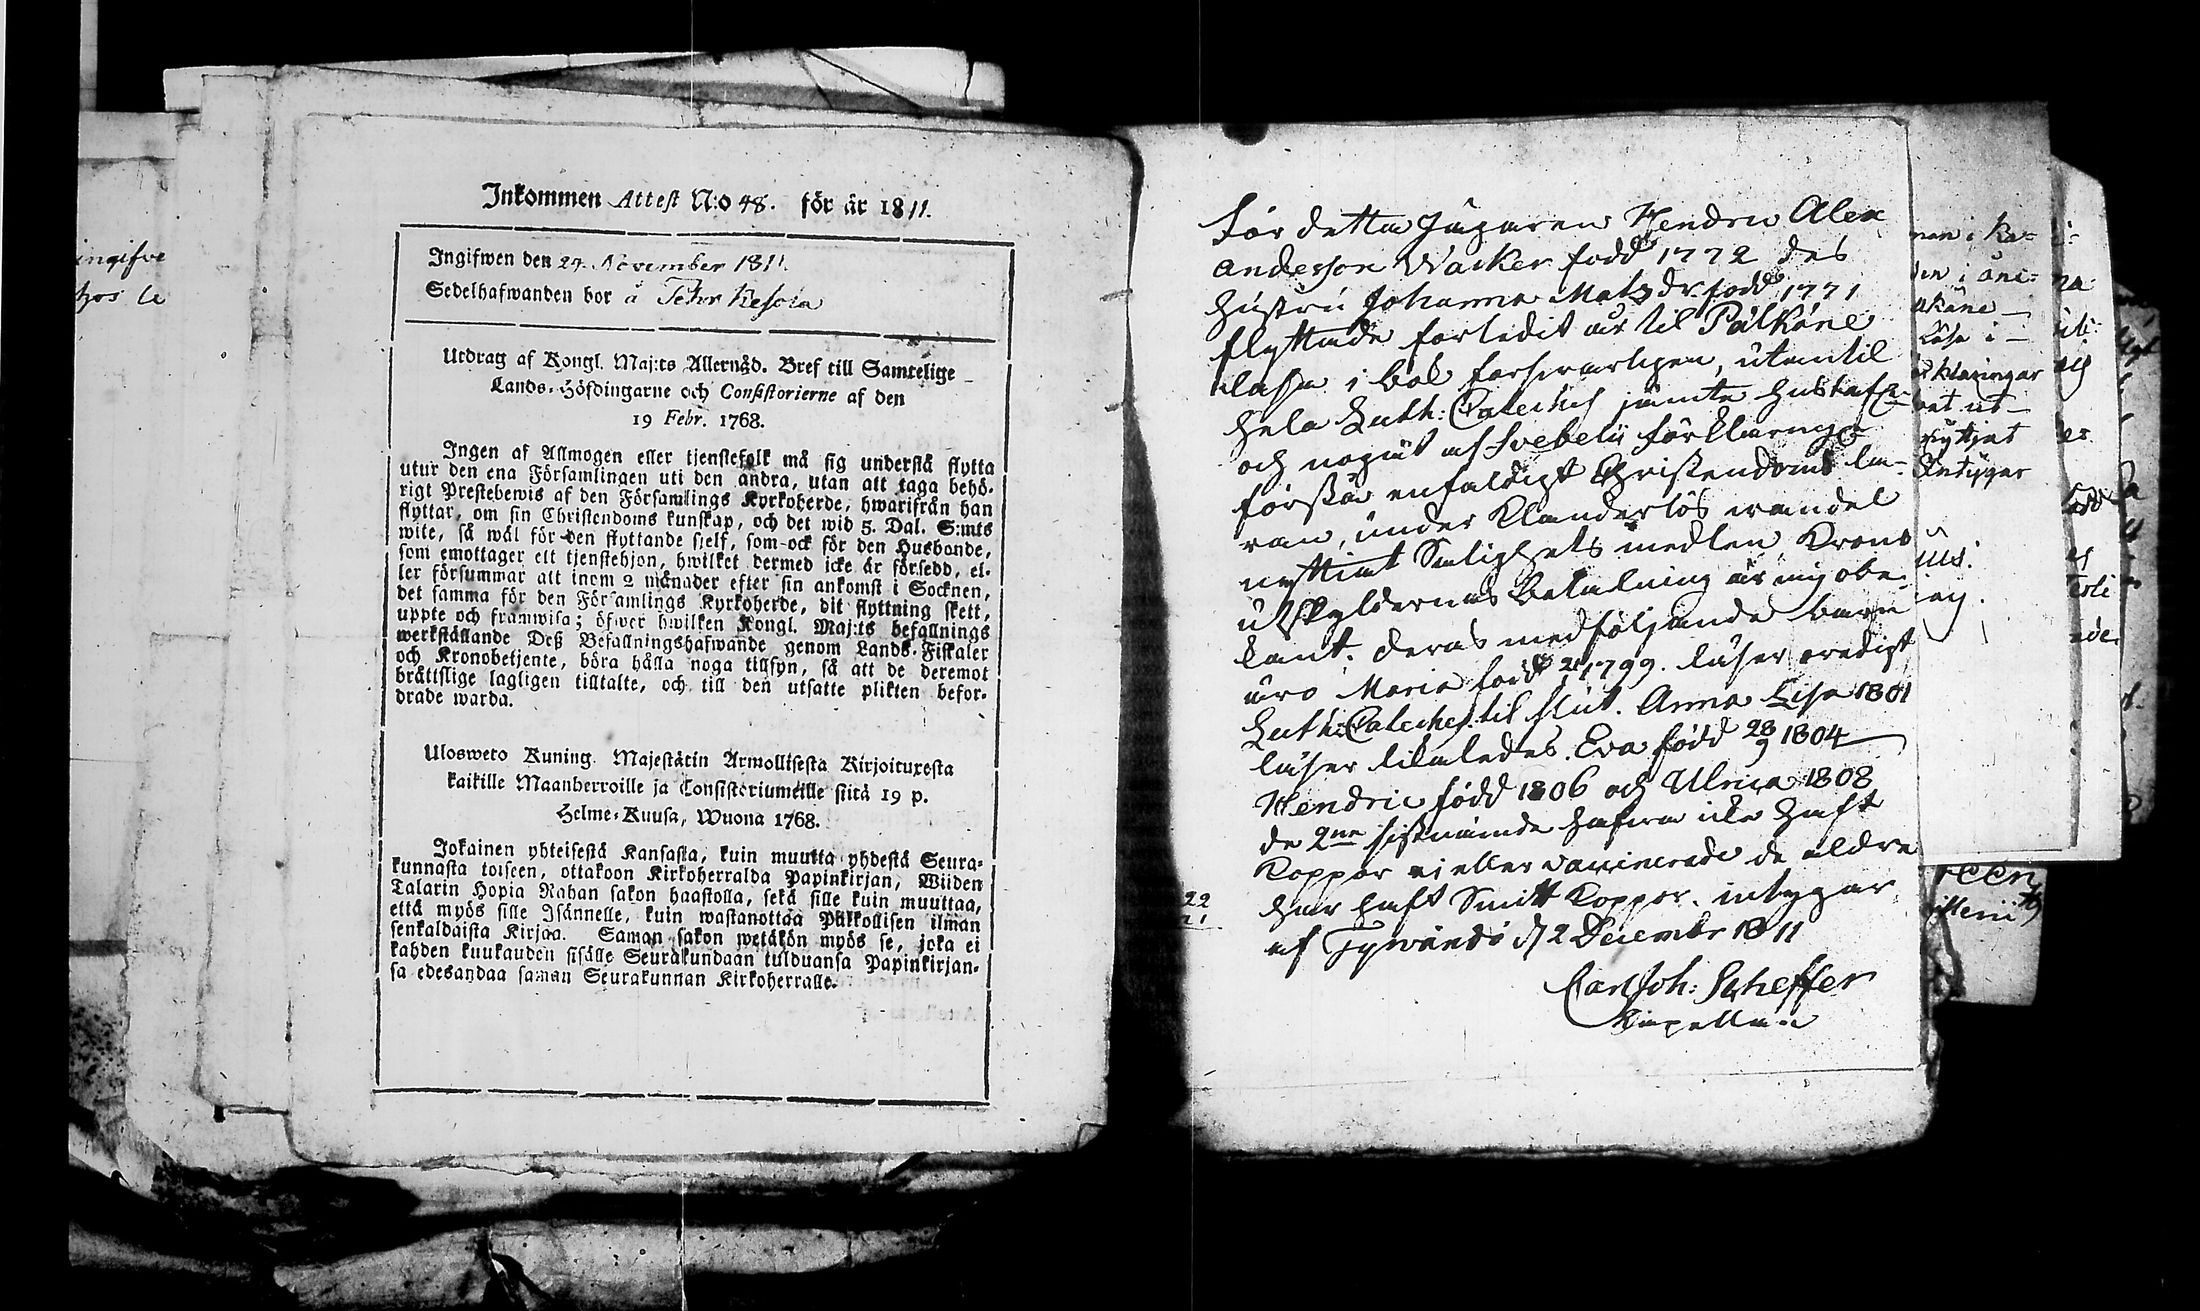 ingifve
hos
Inkommen Attest N:o 48. för år 1811.
Ingifwen den 27. November 1811.
Sedelhafwanden bor å Tehr Kesola
Utdrag af Kongl. Maj:ts Allernåd. Bref till Samtelige
Lands-Höfdingarne och Consistorierne af den
19 Febr. 1768.
Ingen af Allmogen eller tjenstefolk må sig understå flytta
utur den ena Församlingen uti den andra, utan att taga behö-
rigt Prestebewis af den Församlings Kyrkoherde, hwarifrån han
flyttar, om sin Christendoms kunskap, och det wid 5. Dal. S:mts
wite, så wäl för den flyttande sjelf, som ock för den Husbonde,
som emottager ett tjenstehjon, hwilket dermed icke är försedd, el-
ler försummar att inom 2 månader efter sin ankomst i Socknen,
det samma för den Församlings Kyrkoherde, dit flyttning skett,
uppte och framwisa; öfwer hwilken Kongl. Maj:ts befallnings
werkställande Deß Befallningshafwande genom Lands-Fiskaler
och Kronobetjente, böra hålla noga tillsyn, så att de deremot
brättslige lagligen tilltalte, och till den utsatte plikten befor-
drade warda.
Ulosweto Kuning. Majestätin Armollisesta Kirjoituxesta
kaikille Maanherroille ja Consistoriumeille siitä 19 p.
Helme-Kuusa, Wuona 1768.
Jokainen yhteisestä Kansasta, kuin muutta yhdestä Seura-
kunnasta toiseen, ottakoon Kirkoherralda Papinkirjan, Wiiden
Talarin Hopia Rahan sakon haastolla, sekä sille kuin muuttaa,
että myös sille Isännelle, kuin wastanottaa Piikkollisen ilman
senkaldaista Kirjaa. Saman sakon wetäkön myös se, joka ei
kahden kuukauden sisälle Seurakundaan tulduansa Papinkirjan-
sa edesandaa saman Seurakunnan Kirkoherralle.
För detta Jägaren Hendric Alex
andersson Wacker född 1772 des
hustru Johanna Matsdr. född 1771
flyttade förledit år til Pälkäne
läsa i bok forsvarligen, utantil
hela Luth: Cateches jämte Hustafl.
och nogut af Svebelii förklaring
förstå enfaldigt Christendoms lä-
ran, under Klanderlös wandel
nyttiat Salighets medlen Krono
utskyldernas betalning är mig obe-
kant. Deras medföljande barn
äro Maria född 1799. läser oredigt
Luth: Cateches til slut. Anna Lisa 1801
läser likaledes. Eva född 28/9 1804
Hendric född 1806 och Ulrica 1808
de 2ne sistnämde hafva icke haft
Koppor ei eller vaccinerade de äldre
har haft Smitt Koppor. intygar
af Tyrwändö d 2 Decembr 1811
Carl Joh: Scheffer
Kapellan
22